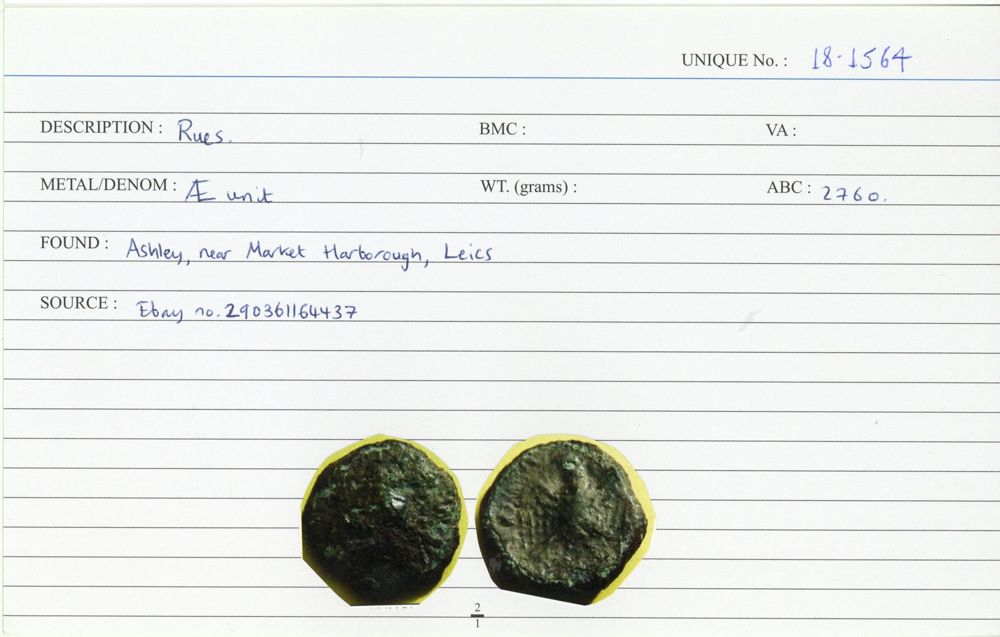 UNIQUE No. : 18.1564
DESCRIPTION : Rues. BMC : VA :
METAL/DENOM : Æ unit WT. (grams) : ABC : 2760.
FOUND : Ashley, near Market Harborough, Leics
SOURCE : Ebay no. 290361164437
2
1